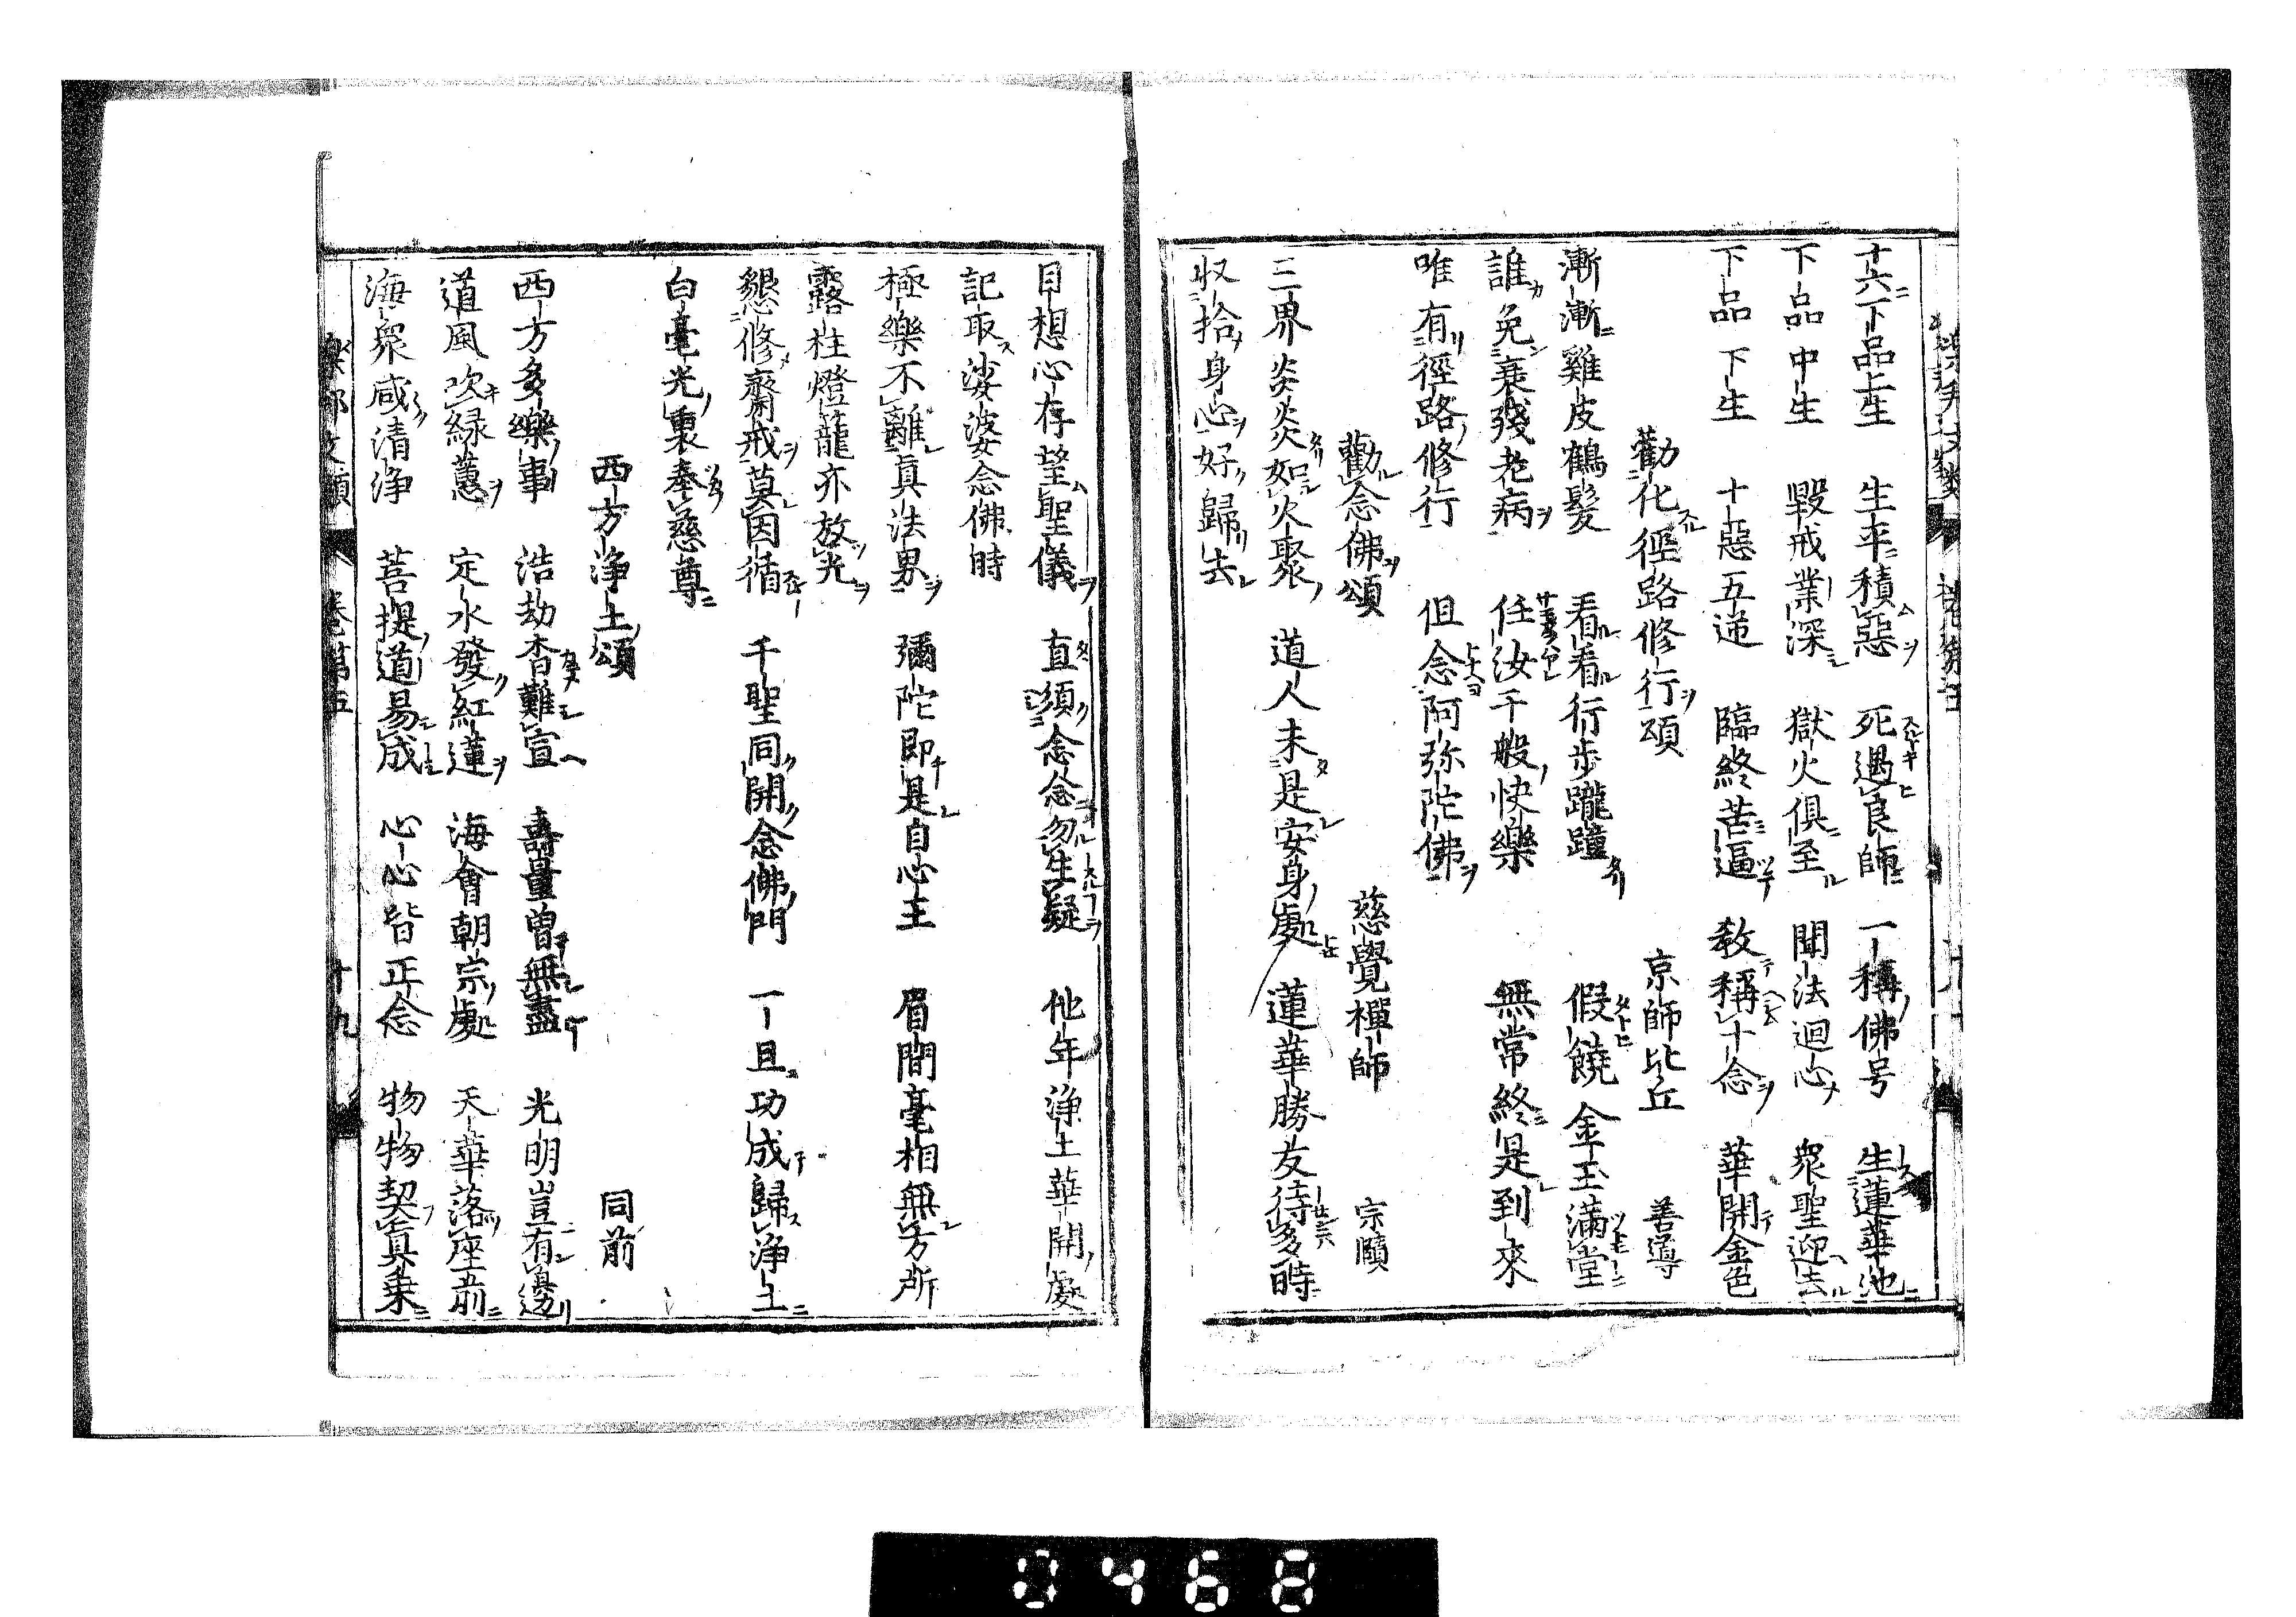 十六下品上生　生平積惡　死遇良師　一稱佛号　生蓮華池
下品中生　毀戒業深　獄火俱至　聞法迴心　衆聖迎去
下品下生　十惡五逆　臨終苦逼　教稱十念　華開金色
勸化徑路修行頌　京師比丘　善導
漸漸雞皮鶴髮　看看行步躘踵　假饒金玉滿堂
誰免衰殘老病　任汝千般快樂　無常終是到來
唯有徑路修行　但念阿弥陀佛
勸念佛頌　慈覺禪師　宗賾
三界炎炎如火聚　道人未是安身處　蓮華勝友待多時
収拾身心好歸去
目想心存望聖儀　直須念念勿生疑　他年淨土華開處
記取娑婆念佛時
極樂不離真法界　彌陀即是自心王　眉間毫相無方所
露柱燈籠亦放光
懇修齋戒莫因循　千聖同開念佛門　一旦功成歸淨土
白毫光裏奉慈尊
西方淨土頌　同前
西方多樂事　浩劫杳難宣　壽量曾無盡　光明豈有邊
道風吹緑蕙　定水發紅蓮　海會朝宗處　天華落座前
海衆咸清淨　菩提道易成　心心皆正念　物物契真乗
樂邦文類　卷第五　十九
0468